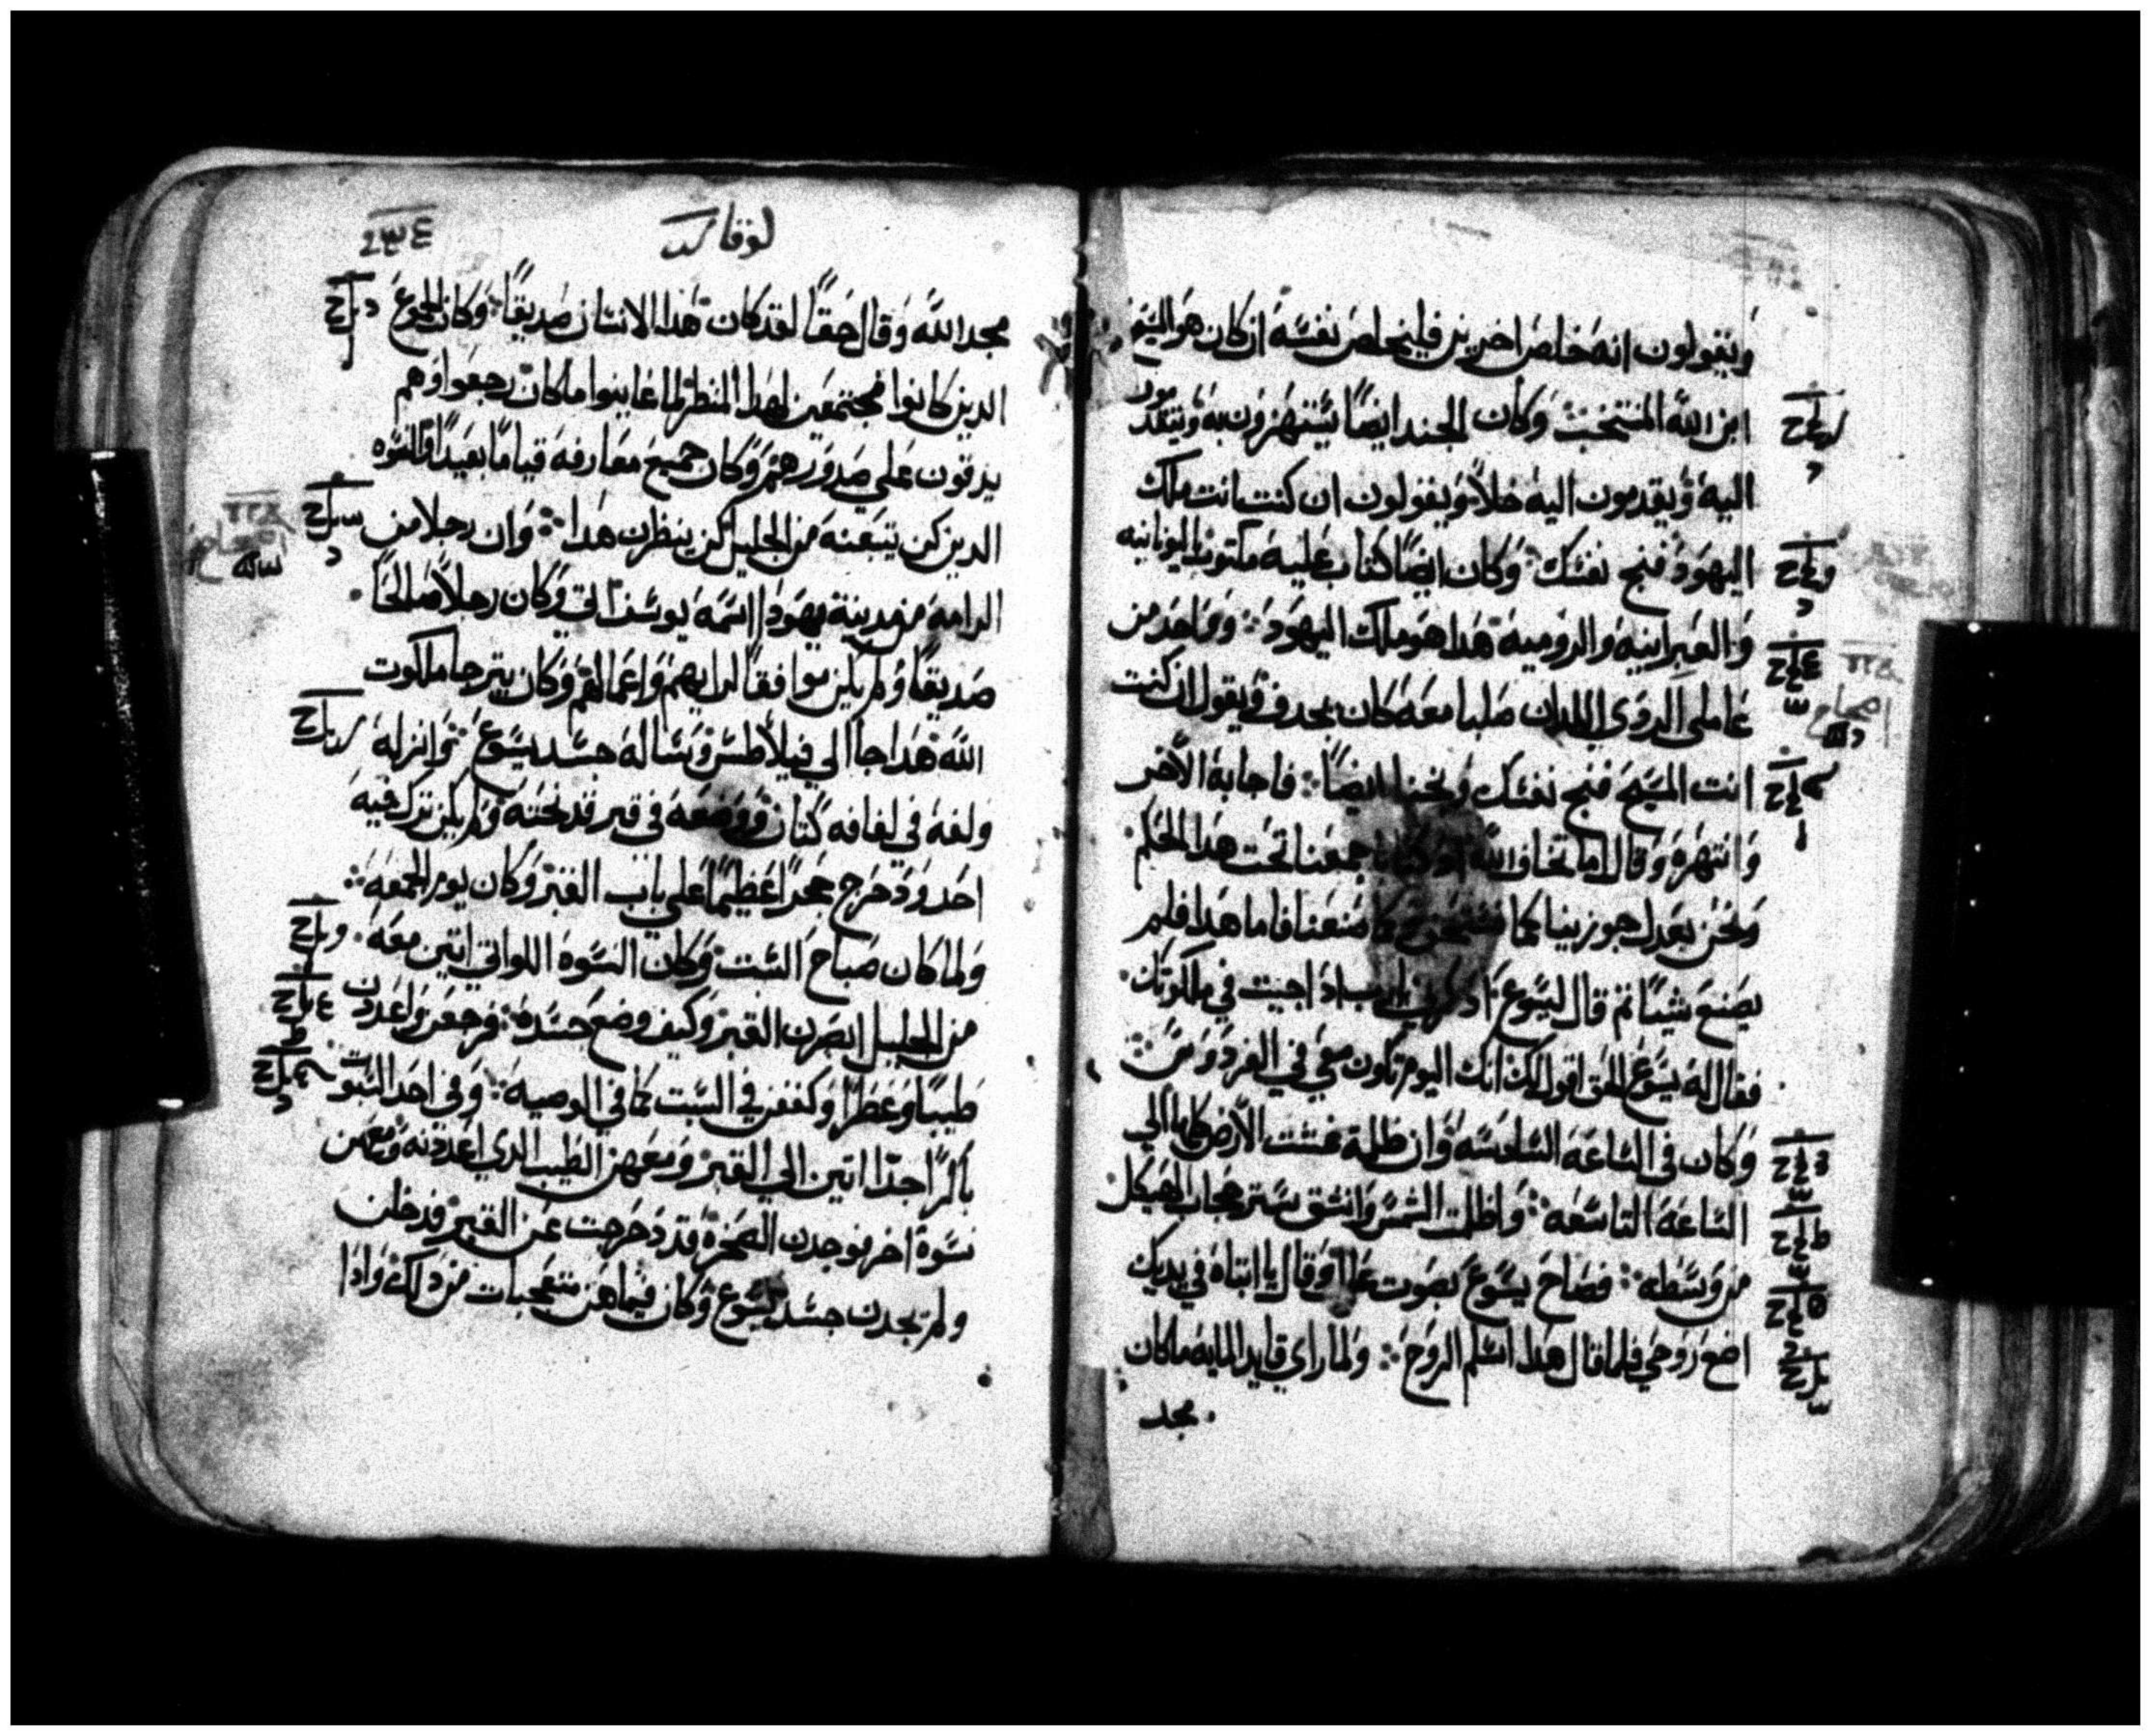 ويقولون انه خلص اخرين فليخلص نفسه ان كان هو المسيح
ابن الله المنتخب وكان الجند ايضا يستهزون به ويتقدمون
اليه ويقدمون اليه خلا ويقولون ان كنت انت ملك
اليهود فنج نفسك وكان ايضا كتاب عليه مكتوب باليونانيه
والعبرانيه والروميه هدا هو ملك اليهود وواحد من
عاملي الردي اللدان صلبا معه كان يجدف ويقول ان كنت
انت المسيح فنج نفسك ونجنا ايضا فاجابه الاخر
وانتهره وقال اما تخاف الله جمعنا تحت هدا الحكم
ونحن بعدل جوزينا كما نستحق كما صنعنا فاما هدا فلم
يصنع شيا ثم قال ليسوع ادكرني يارب ادا جيت في ملكوتك
فقال له يسوع الحق اقول لك انك اليوم تكون معي في الفردوس
وكان في الساعه السادسه وان ظلمة غشت الارض كلها الي
الساعه التاسعه واظلمت الشمس وانشق ستر حجاب الهيكل
من وسطه فصاح يسوع بصوت عال وقال يا ابتاه في يديك
اضع روحي فلما قال هدا اسلم الروح ولما راي قايد المايه ماكان
مجد
لوقا كد
مجد الله وقال حقا لقد كان هدا الانسان صديقا وكان الجموع
الدين كانوا مجتمعين لهدا المنظر لما عاينوا ماكان رجعوا وهم
يدقون علي صدورهم وكان جميع معارفه قياما بعيدا والنسوه
الدين كن يتبعنه من الجليل كن ينظرن هدا وان رجلا من
الرامه من مدينة يهودا اسمه يوسف وكان رجلا صالحا
صديقا ولم يكن موافقا لرايهم واعمالهم وكان يترجا ملكوت
الله هدا جا الي فيلاطس وساله جسد يسوع وانزله
ولفه في لفافه كتان ووضعه في قبر قد نحته ولم يكن ترك فيه
احد ودحرج حجرا عظيما علي باب القبر وكان يوم الجمعه
ولما كان صباح السبت وكان النسوه اللواتي اتين معه
من الجليل ابصرن القبر وكيف وضع جسده فرجعن واعددن
طيبا وعطرا وكففن في السبت كما في الوصيه وفي احد السبوت
باكرا جدا اتين الي القبر ومعهن الطيب الدي اعددنه ومعهن
نسوة اخر فوجدن الصخرة قد دحرجت عن القبر فدخلن
ولم يجدن جسد يسوع وكان فيما هن متعجبات من دلك وادا